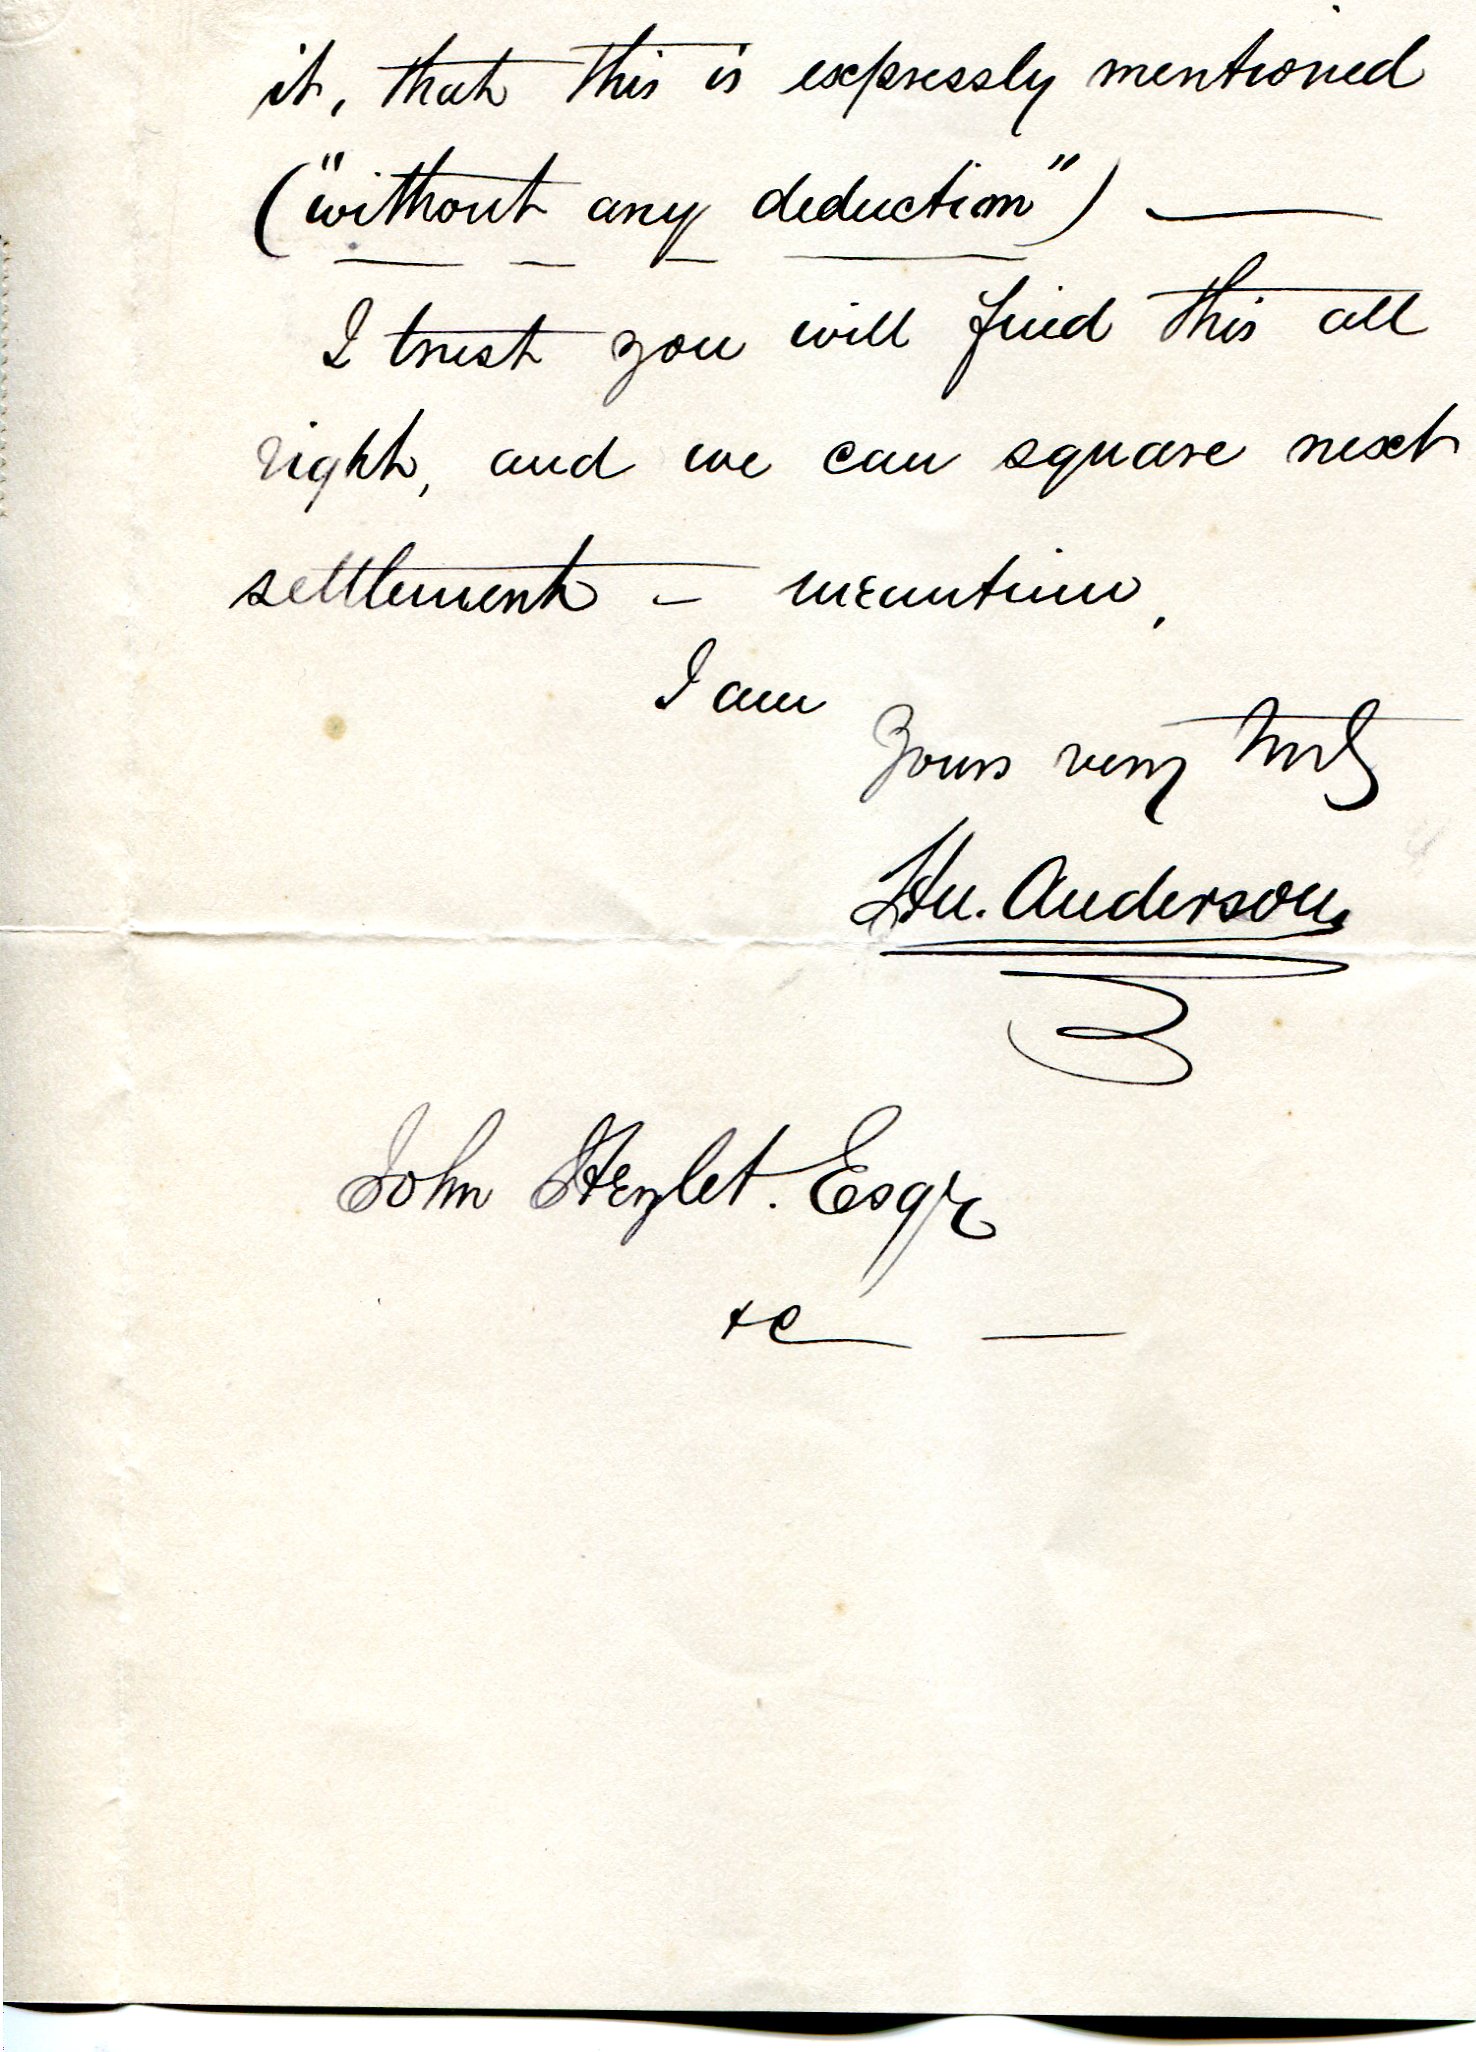 it, that this is expressly mentioned
("without any deduction") —
I trust you will find this all
right, and we can square next
settlement – meantime,
I am
Yours very truly
Hu. Anderson
John Hezlet. Esqr
&c — —